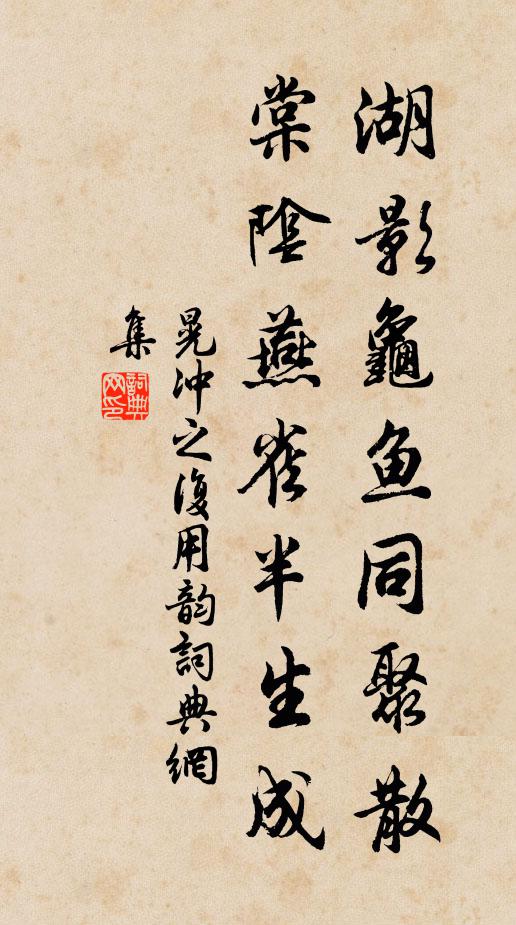 湖影龜魚同聚散
棠陰燕雀半生成
晁冲之復用韵詞典網
集
詞典
网印